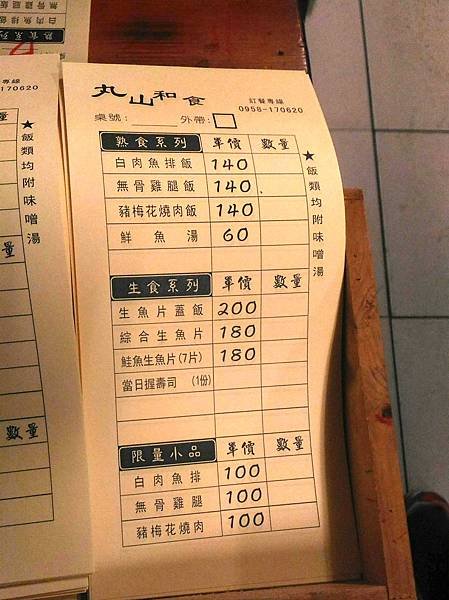 白肉魚排飯
無骨雞腿飯
熟食系列
專線
170620
★飯類均附味噌湯
數量
數量
丸山和食
訂餐專線
0958-170620
桌號：
外帶：
熟食系列 單價 數量
白肉魚排飯 140
無骨雞腿飯 140
豬梅花燒肉飯 140
鮮魚湯 60
★飯類均附味噌湯
生食系列 單價 數量
生魚片蓋飯 200
綜合生魚片 180
鮭魚生魚片(7片) 180
當日握壽司 (1份)
限量小品 單價 數量
白肉魚排 100
無骨雞腿 100
豬梅花燒肉 100